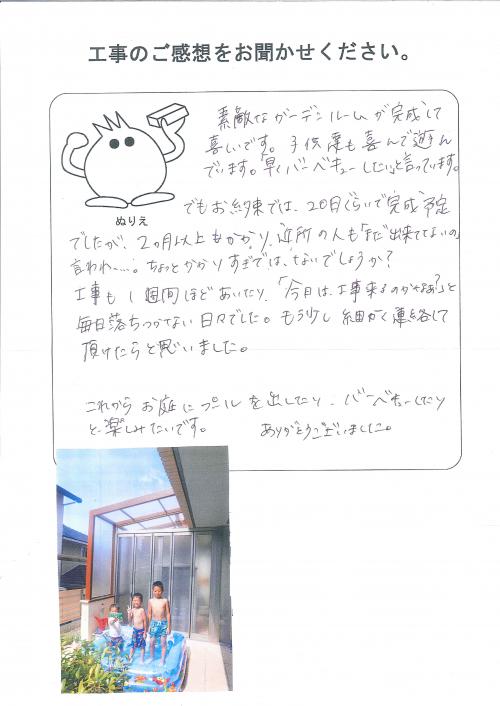 工事のご感想をお聞かせください。
素敵なガーデンルームが完成して
喜しいです。子供達も喜んで遊ん
でいます。「早くバーベキューしたい」と言っています。
ぬりえ
でもお約束では、20日ぐらいで完成予定
でしたが、2ヵ月以上もかかり、近所の人も「まだ出来てないの」
言われ…。ちょっとかかりすぎでは、ないでしょうか?
工事も1週間ほどあいたり、「今日は、工事来るのかなあ?」と
毎日落ちつかない日々でした。もう少し細かく連絡して
頂けたらと思いました。
これからお庭にプールを出したり、バーベキューしたり
と楽しみたいです。 ありがとうございました。